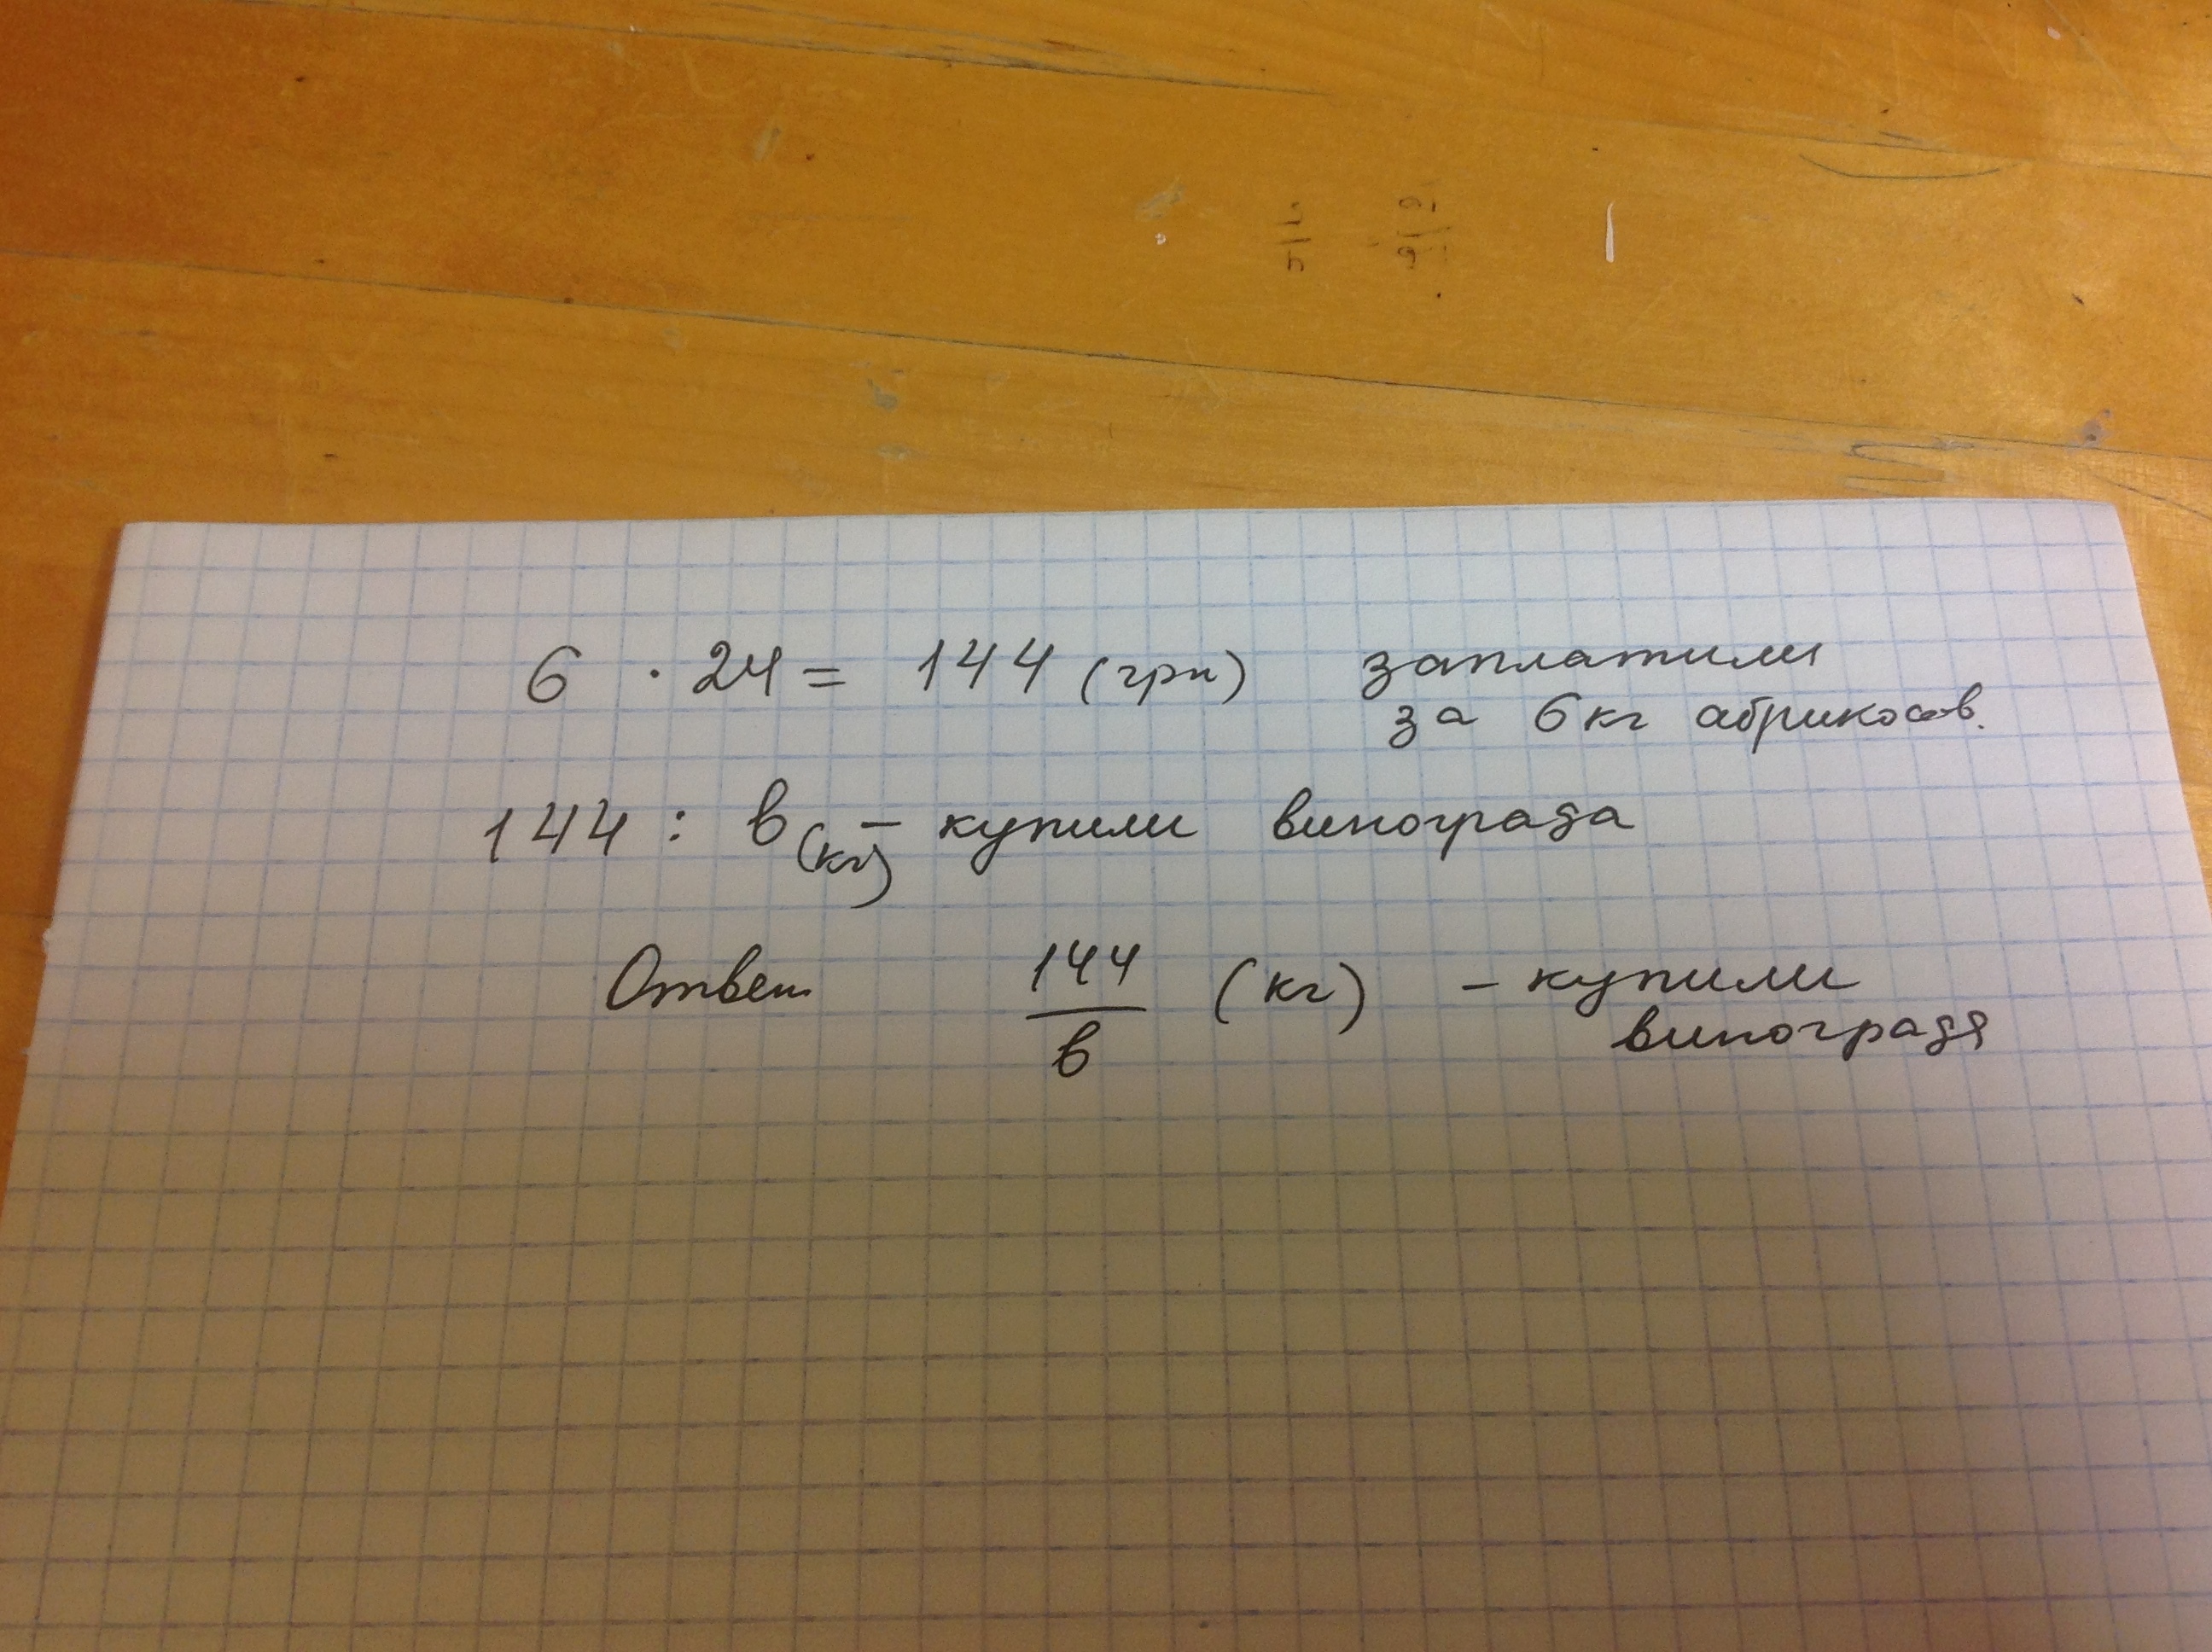 6 · 24 = 144 (грн) заплатили
за 6 кг абрикосов.
144 : в (кг) – купили винограда
Ответ 144/в (кг) – купили
винограда